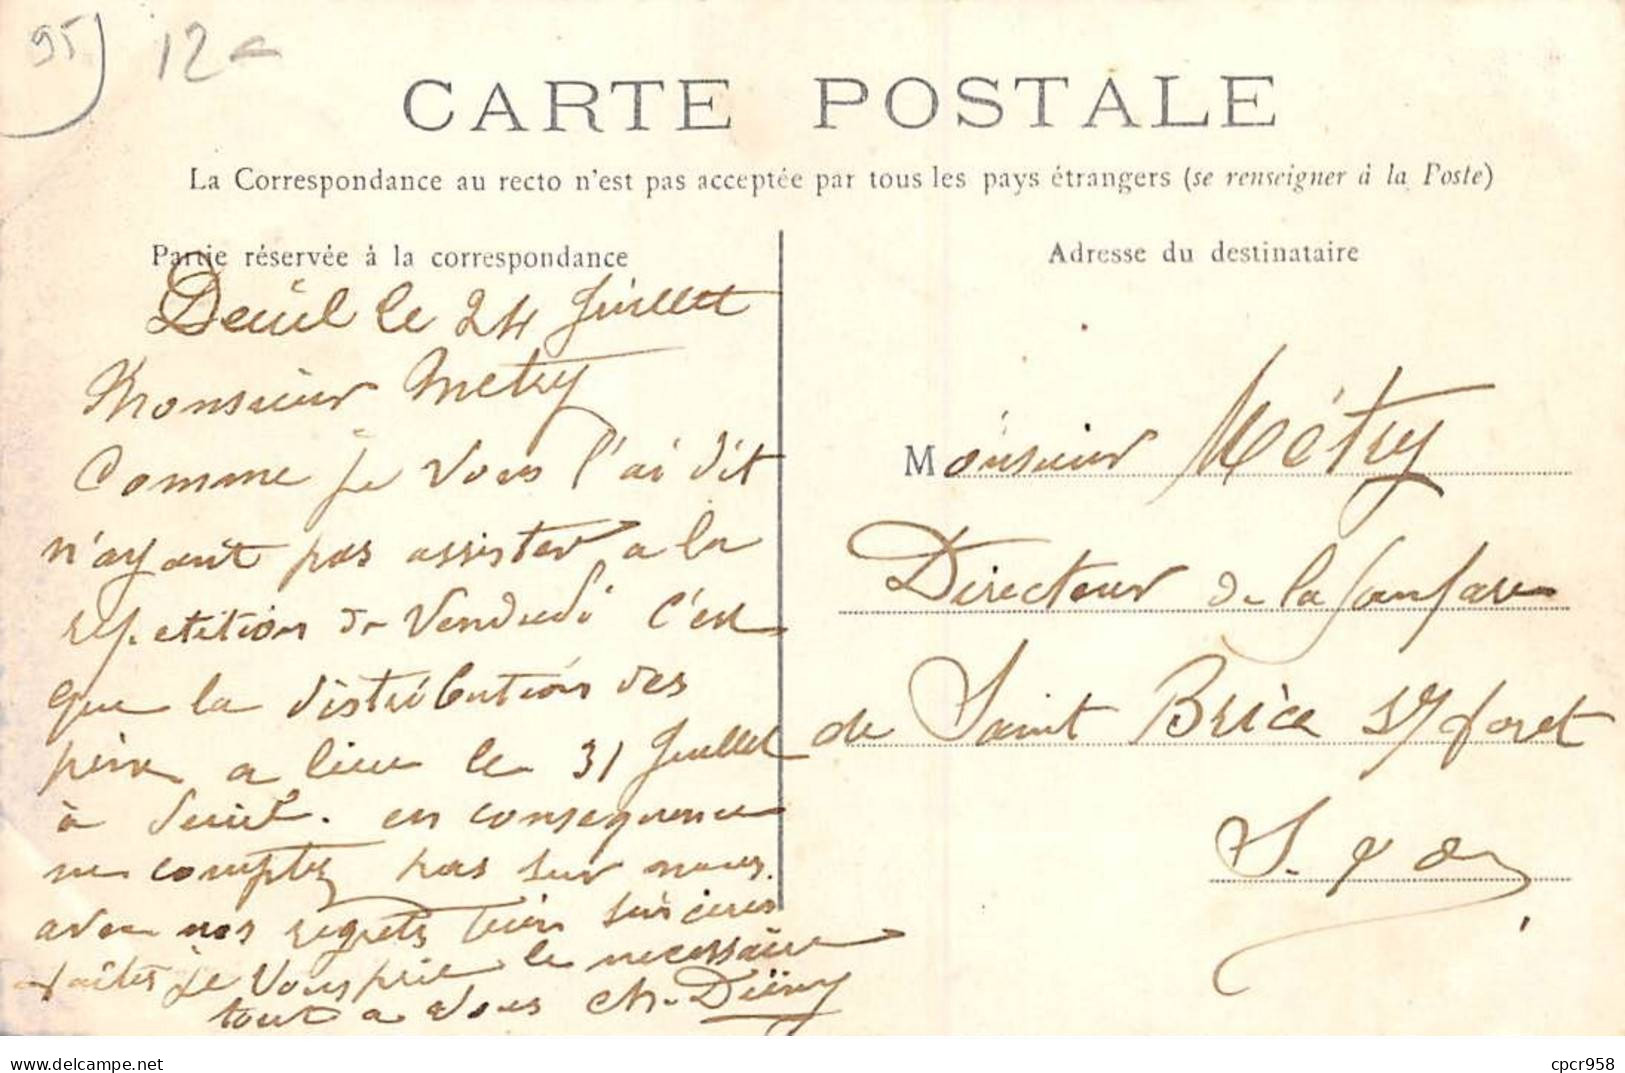 95 12
CARTE POSTALE
La Correspondance au recto n'est pas acceptée par tous les pays étrangers (se renseigner à la Poste)
Partie réservée à la correspondance
Adresse du destinataire
Deuil le 24 Juillet
Monsieur Metry
Comme je vous l'ai dit
n'ayant pas assister a la
repetition de Vendredi c'est
que la distribution des
prix a lieu le 31 Juillet
à Deuil. en consequence
ne comptez pas sur nous.
avec nos regrets bien sinceres
faites je vous prie le necessaire
tout a vous Ch. Diëny
Monsieur Métry
Directeur de la fanfare
de Saint Brice s/ foret
S. & O.
delcampe.net
cpcr958